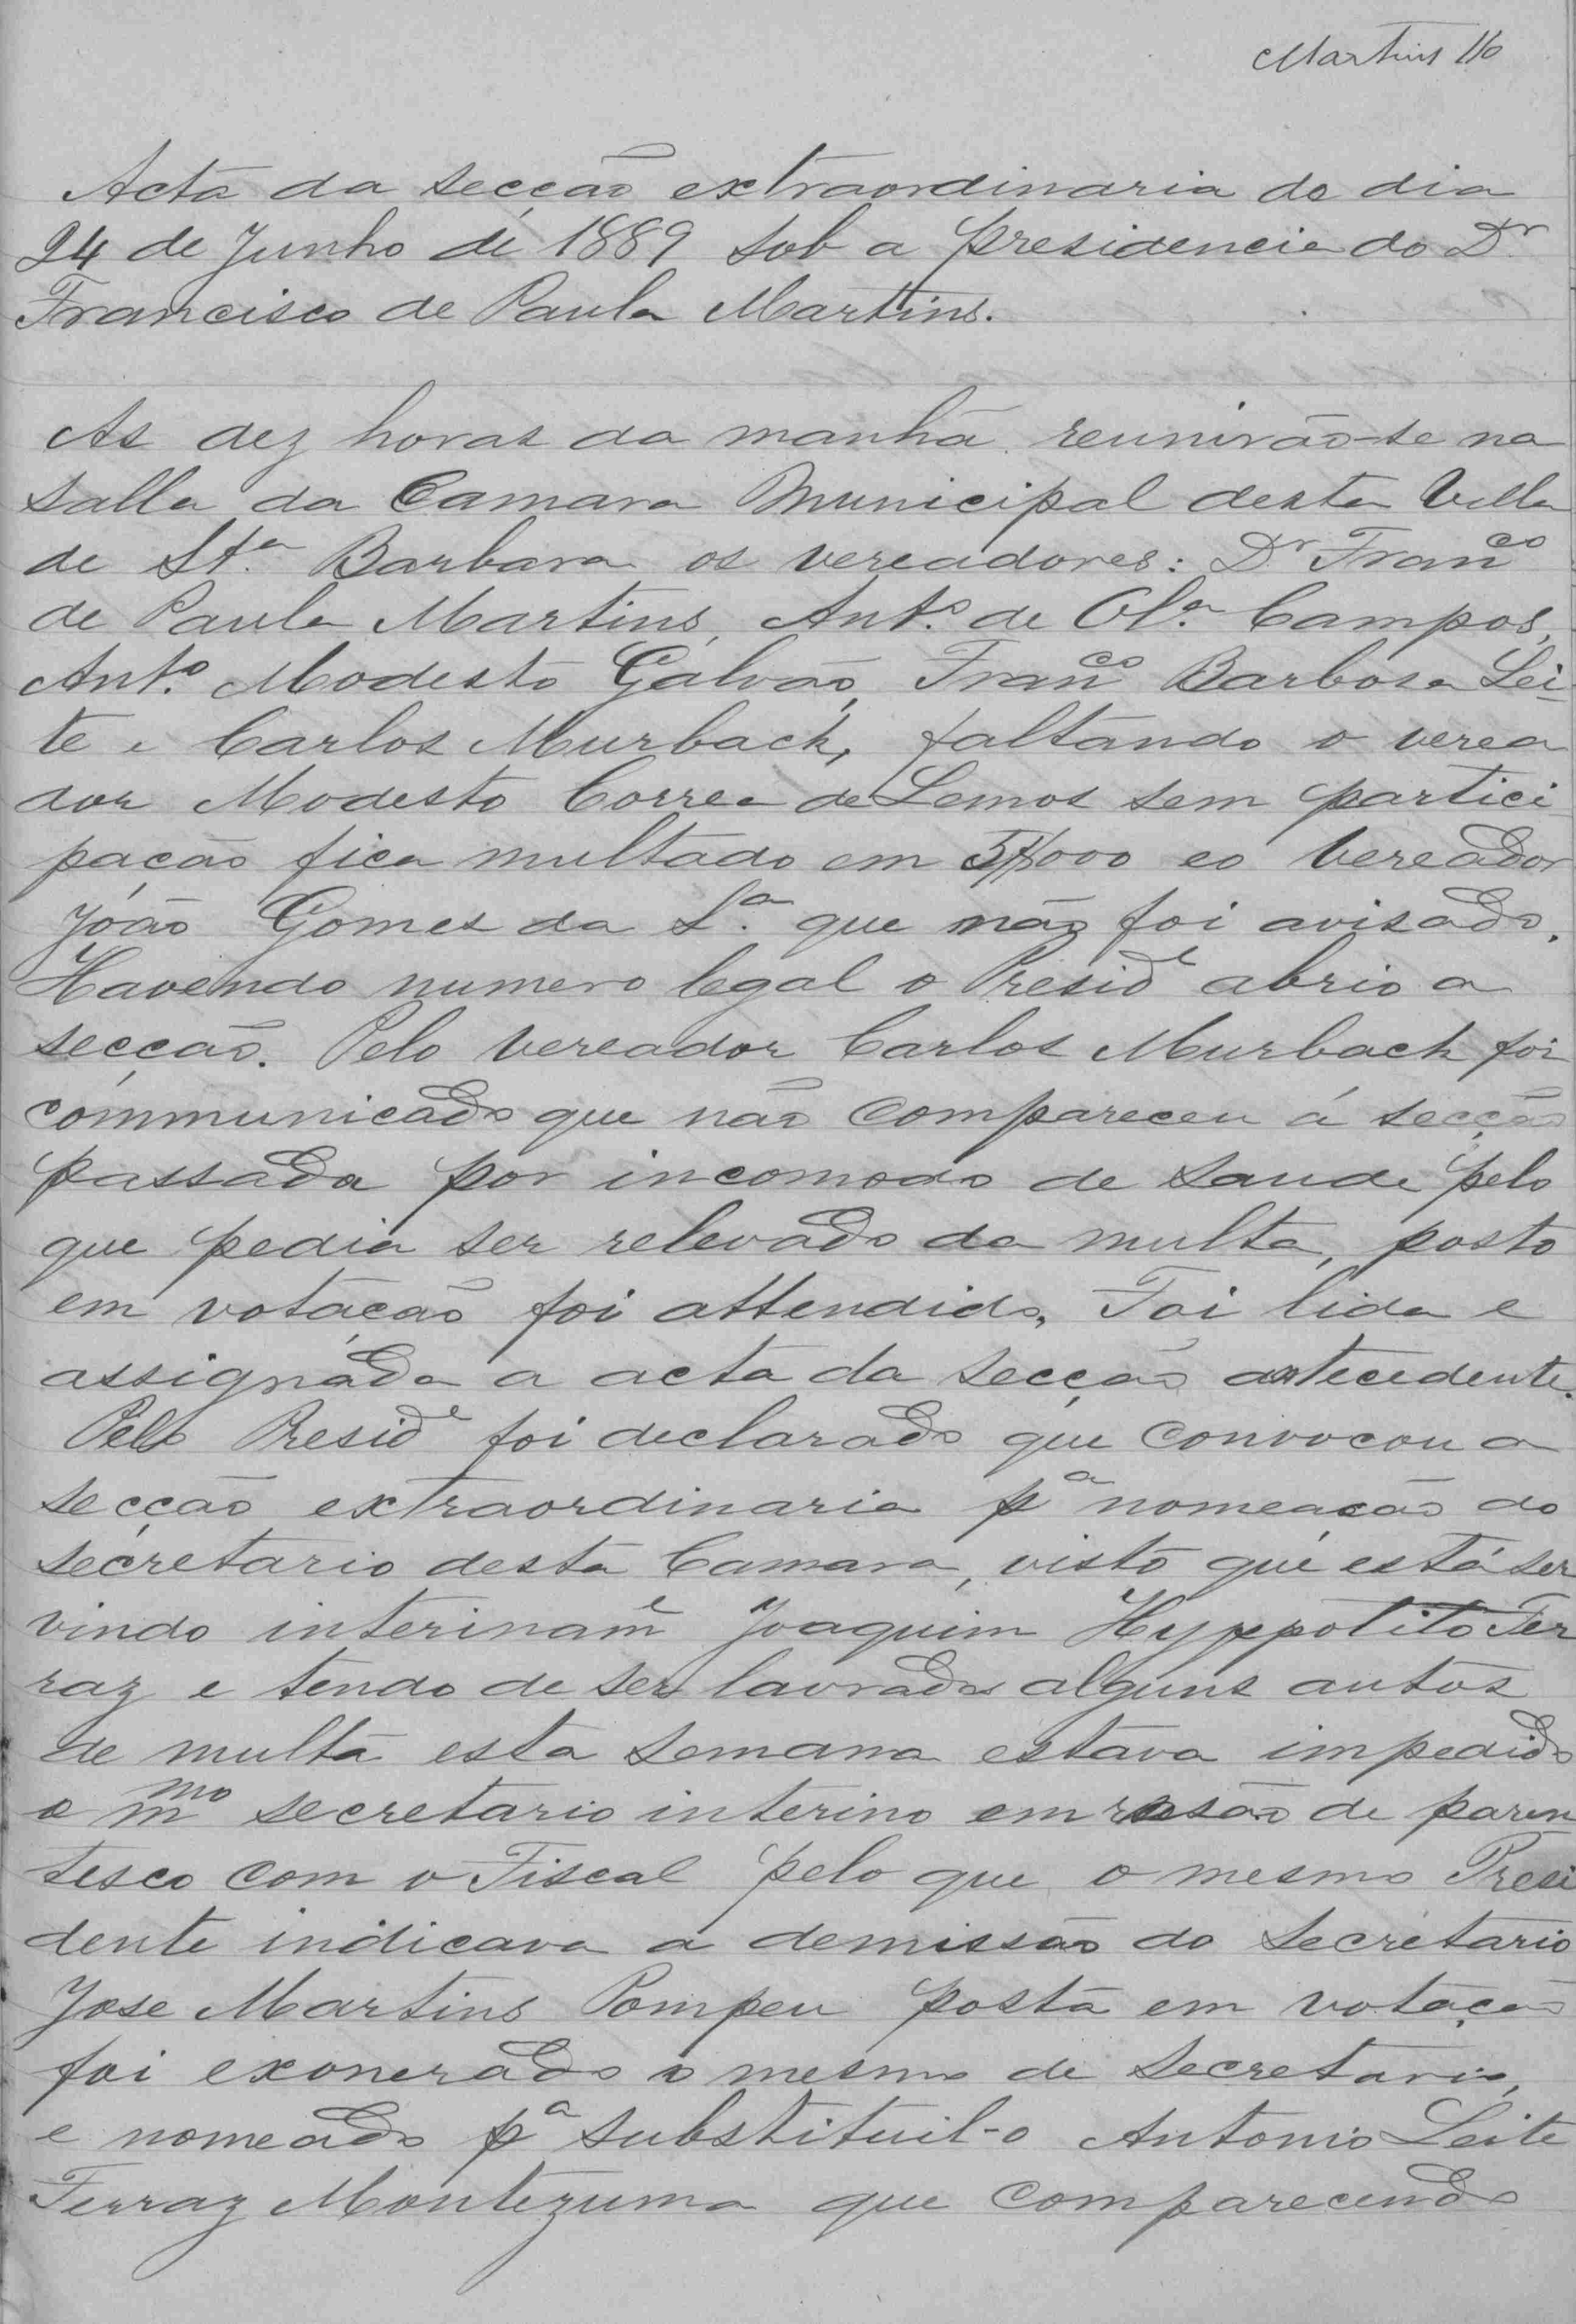 Martins 116
Acta da secção extraordinaria do dia
24 de Junho de 1889 sob a presidencia do Dr
Francisco de Paula Martins.
As dez horas da manhã reunirão-se na
salla da Camara Municipal desta Villa
de Sta. Barbara os vereadores: Dr Franco
de Paula Martins, Anto. de Ola. Campos,
Anto. Modesto Galvão, Franco Barbosa Lei-
te e Carlos Murback, faltando o verea
dor Modesto Correa de Lemos sem partici
pação fica multado em 5$000 eo vereador
João Gomes da Sa. que não foi avisado.
Havendo numero legal o Preside abrio a
secção. Pelo vereador Carlos Murback foi
communicado que não compareceu á secção
passada por incomodo de saude pelo
que pedia ser relevado da multa, posto
em votação foi attendido. Foi lida e
assignada a acta da secção antecedente.
Pelo Preside foi declarado que convocou a
secção extraordinaria pa nomeação do
secretario desta Camara, visto que está ser
vindo interiname Joaquim Hyppolito Fer
raz e tendo de ser lavrados alguns autos
de multa esta semana estava impedido
o mmo secretario interino em rasão de paren
tesco com o Fiscal pelo que o mesmo Presi
dente indicava a demissão do Secretario
Jose Martins Pompeu posta em votação
foi exonerado o mesmo de secretario,
e nomeado pa substituil-o Antonio Leite
Ferraz Montezuma que comparecendo